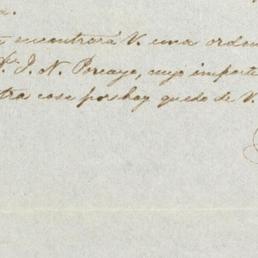 a.
encontrará V. una orden
Sr. J. N. Porcayo, cuyo importe
otra cosa por hoy quedo de V.